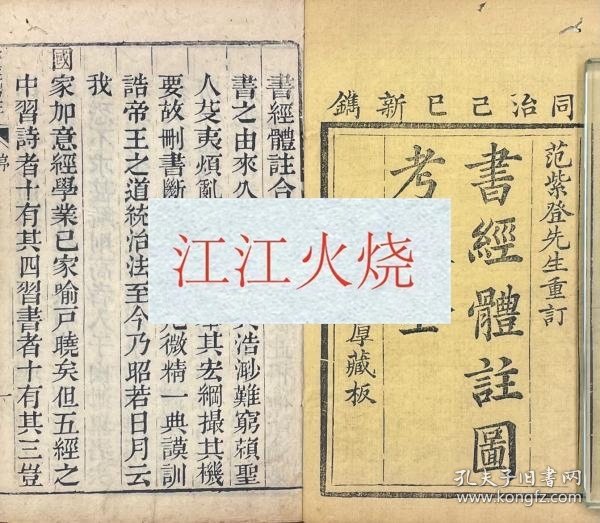 同治己巳新鐫
范紫登先生重訂
書經體註圖
考
厚藏板
書經體註合
書之由來久
浩渺難窮賴聖
人芟夷煩亂
其宏綱撮其機
要故刪書斷
危微精一典謨訓
誥帝王之道統治法至今乃昭若日月云
我
國
家加意經學業已家喻戸曉矣但五經之
中習詩者十有其四習書者十有其三豈
序
一
江江火烧
孔夫子旧书网
www.kongfz.com